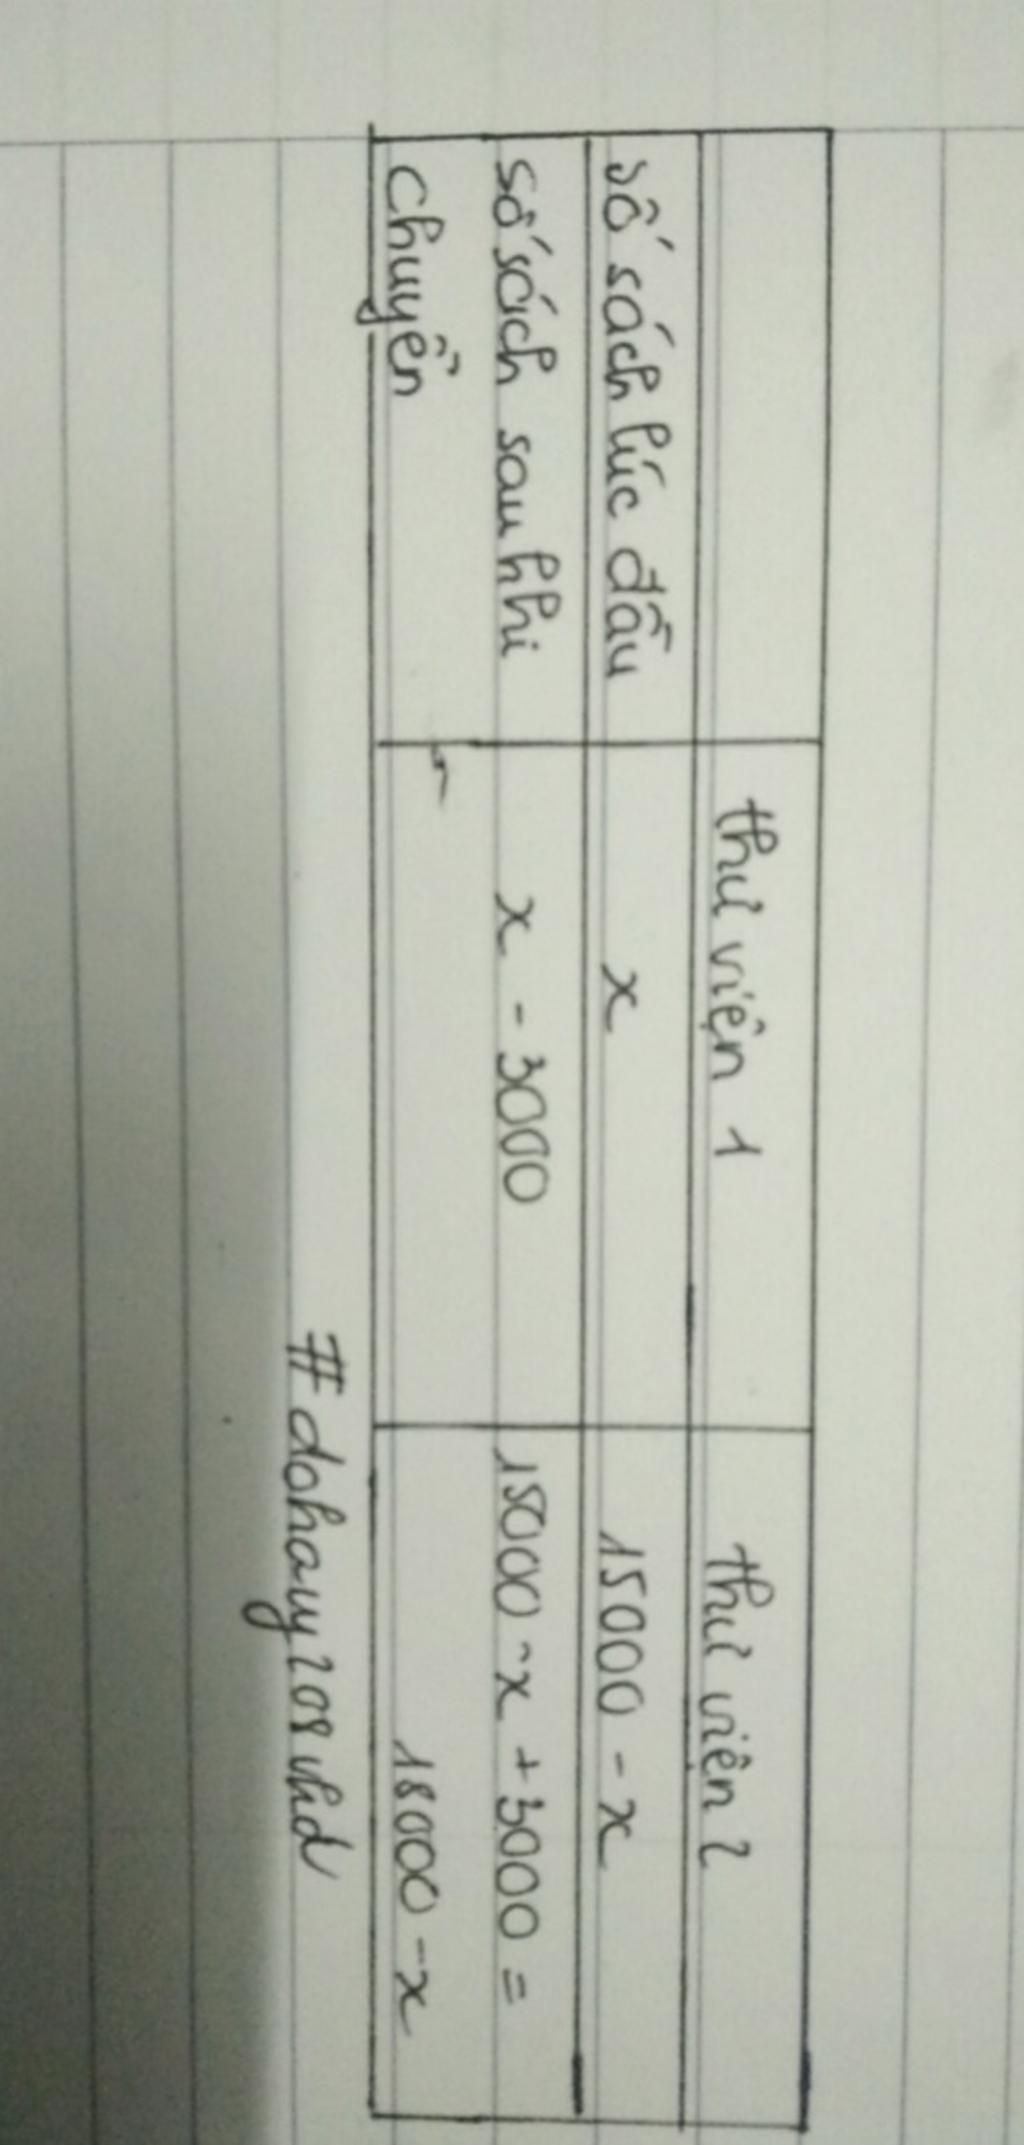 thư viện 1 thư viện 2
số sách lúc đầu x 15000 - x
số sách sau khi x - 3000 15000 - x + 3000 =
chuyển 18000 - x